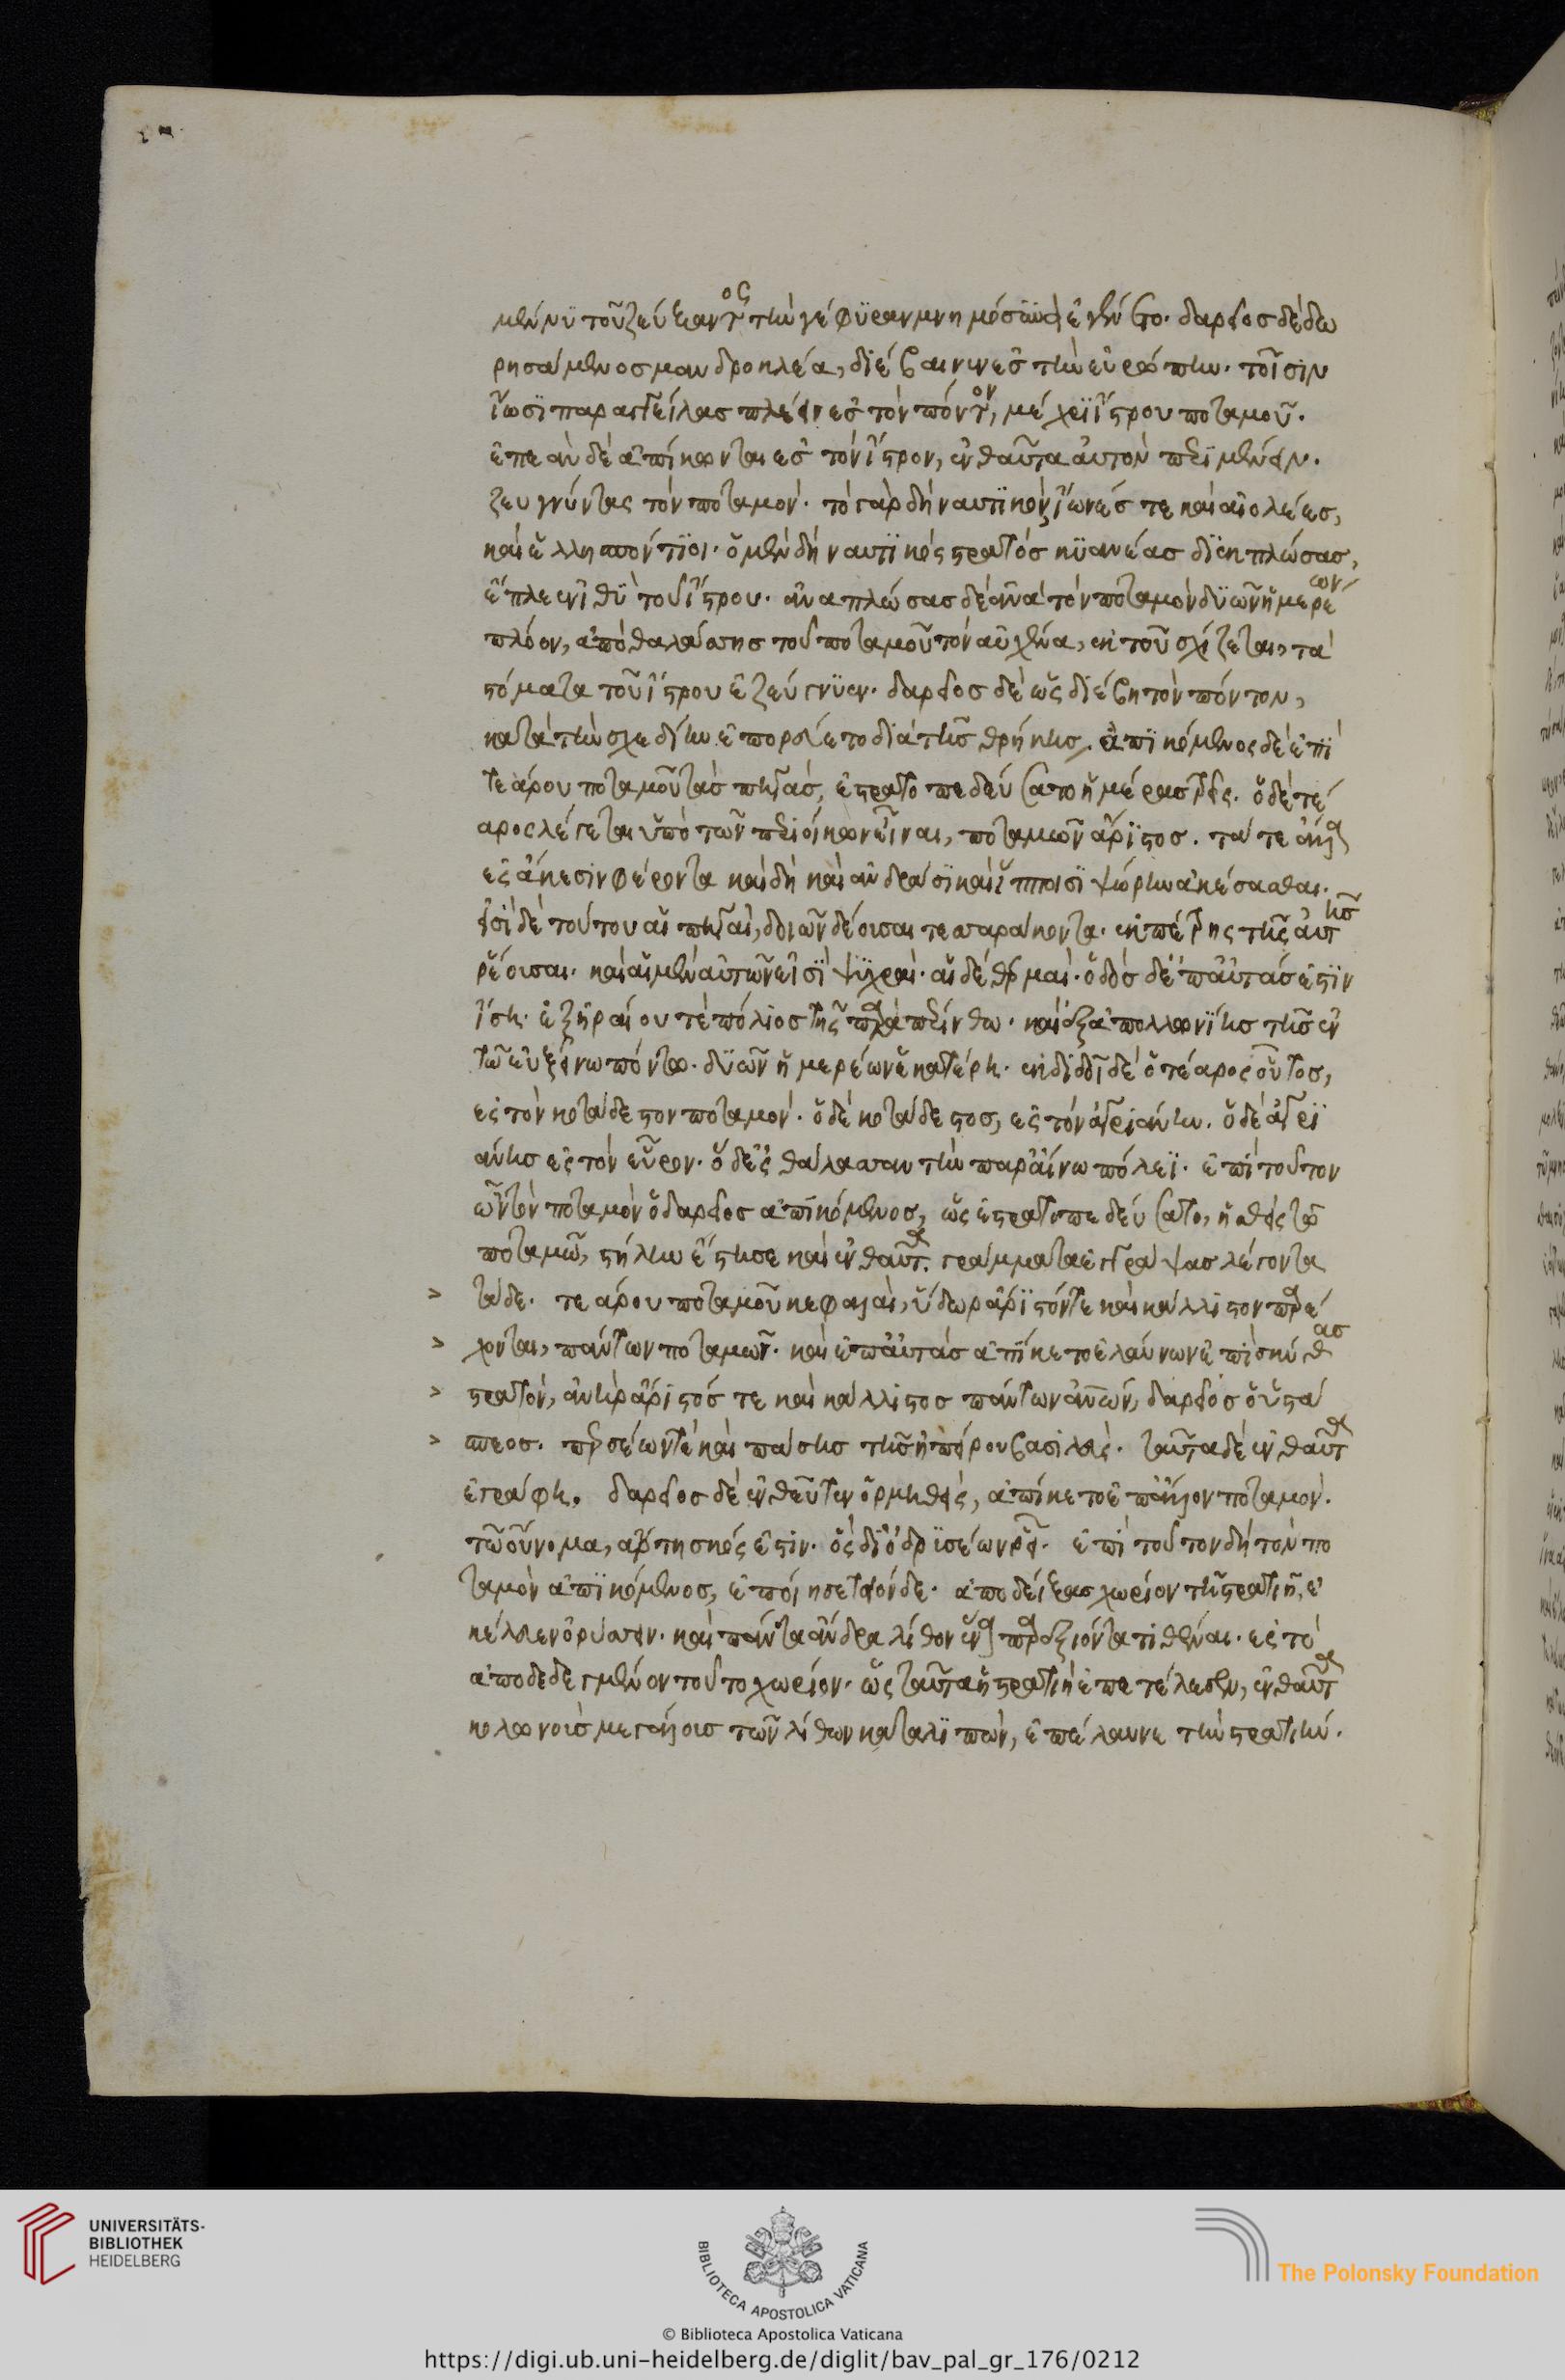 μέν νυν τοῦ ζεύξαντος τὴν γέφυραν μνημόσυνα ἐγένετο. δαρεῖος δὲ δω
ρησάμενος μανδροκλέα, διέβαινε ἐς τὴν εὐρώπην. τοῖσιν
ἴωσι παραγγείλας πλέειν ἐς τὸν πόντον, μέχρι ἴστρου ποταμοῦ.
ἐπεὰν δὲ ἀπίκωνται ἐς τὸν ἴστρον, ἐνθαῦτα αὐτὸν περιμένειν.
ζευγνύντας τὸν ποταμόν. τὸ γὰρ δὴ ναυτικὸν ἴωνές τε καὶ αἰολέες,
καὶ ἑλλησπόντιοι. ὁ μὲν δὴ ναυτικὸς στρατὸς κυανέας διεκπλώσας,
ἔπλεεν ἰθὺ τοῦ ἴστρου. ἀναπλώσας δὲ ἀνὰ τὸν ποταμὸν δυῶν ἡμερέων
πλόον, ἀπὸ θαλάσσης τοῦ ποταμοῦ τὸν αὐχένα, ἐκ τοῦ σχίζεται, τὰ
στόματα τοῦ ἴστρου ἐζεύγνυεν. δαρεῖος δὲ ὡς διέβη τὸν πόντον,
κατὰ τὴν σχεδίην ἐπορεύετο διὰ τῆς θρήκης. ἀπικόμενος δὲ ἐπὶ
τεάρου ποταμοῦ τὰς πηγάς, ἐστρατοπεδεύσατο ἡμέρας τρεῖς. ὁ δὲ τέ
αρος λέγεται ὑπὸ τῶν περιοίκων εἶναι, ποταμῶν ἄριστος. τά τε ἄλλα
ἐς ἄκεσιν φέροντα καὶ δὴ καὶ ἀνδράσι καὶ ἵπποισι ψώρην ἀκέσασθαι.
εἰσὶ δὲ τούτου αἱ πηγαί, δυῶν δέουσαι τεσσαράκοντα. ἐκ πέτρης τῆς αὐτῆς
ῥέουσαι. καὶ αἱ μὲν αὐτῶν εἰσὶ ψυχραί. αἱ δὲ θερμαί. ὁδὸς δ' ἐπ' αὐτάς ἐστιν
ἴση. ἐξ ἡραίου τε πόλιος τῆς παρὰ περίνθω. καὶ ἐξ ἀπολλωνίης τῆς ἐν
τῶ εὐξείνω πόντω. δυῶν ἡμερέων ἑκατέρη. ἐκδιδοῖ δὲ ὁ τέαρος οὗτος,
ἐς τὸν κοτάδεστον ποταμόν. ὁ δὲ κοτάδεστος, ἐς τὸν ἀγριάνην. ὁ δὲ ἀγρι
άνης ἐς τὸν εὖρον. ὁ δὲ ἐς θάλασσαν τὴν παρ' αἴνω πόλει. ἐπὶ τοῦτον
ὦν τὸν ποταμὸν ὁ δαρεῖος ἀπικόμενος, ὡς ἐστρατοπεδεύσατο, ἡσθεὶς τῶ
ποταμῶ, στήλην ἔστησε καὶ ἐνθαῦτα. γράμματα ἐγγράψας λέγοντα
> τάδε. τεάρου ποταμοῦ κεφαλαὶ, ὕδωρ ἄριστόν τε καὶ κάλλιστον παρέ
> χονται, πάντων ποταμῶν. καὶ ἐπ' αὐτὰς ἀπίκετο ἐλαύνων ἐπὶ σκύθας
> στρατὸν, ἀνὴρ ἄριστός τε καὶ κάλλιστος πάντων ἀνθρώπων, δαρεῖος ὁ ὑστά
> σπεος. περσέων τὲ καὶ πάσης τῆς ἠπείρου βασιλεύς. ταῦτα δὲ ἐνθαῦτα
ἐγράφη. δαρεῖος δὲ ἐνθεῦτεν ὁρμηθεὶς, ἀπίκετο ἐπ' ἄλλον ποταμόν.
τῶ οὔνομα, ἀρτησκός ἐστιν. ὃς δι' ὀδρυσέων ῥέει. ἐπὶ τοῦτον δὴ τὸν πο
ταμὸν ἀπικόμενος, ἐποίησε τοιόνδε. ἀποδείξας χωρίον τῆ στρατιῆ, ἐ
κέλευεν ὀρύσσειν. καὶ πάντα ἄνδρα λίθον ἕνα παρεξιόντα τιθέναι. ἐς τὸ
ἀποδεδεγμένον τοῦτο χωρίον. ὡς ταῦτα ἡ στρατιὴ ἐπετέλεσεν, ἐνθαῦτα
κολωνοὺς μεγάλους τῶν λίθων καταλιπὼν, ἐπέλαυνε τὴν στρατιήν.
UNIVERSITÄTS-
BIBLIOTHEK
HEIDELBERG
BIBLIOTECA APOSTOLICA VATICANA
The Polonsky Foundation
© Biblioteca Apostolica Vaticana
https://digi.ub.uni-heidelberg.de/diglit/bav_pal_gr_176/0212